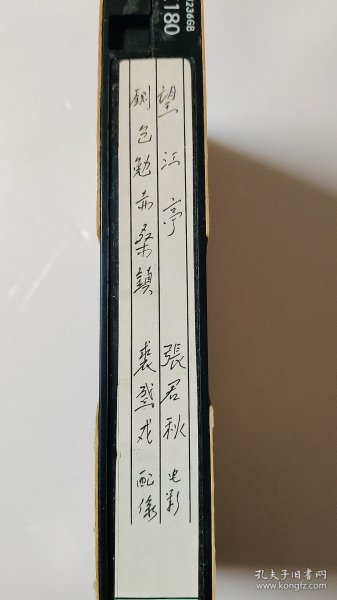 1236GB
180
望江亭 張君秋 电影
铡包勉赤桑鎮 裘盛戎 配像
孔夫子旧书网